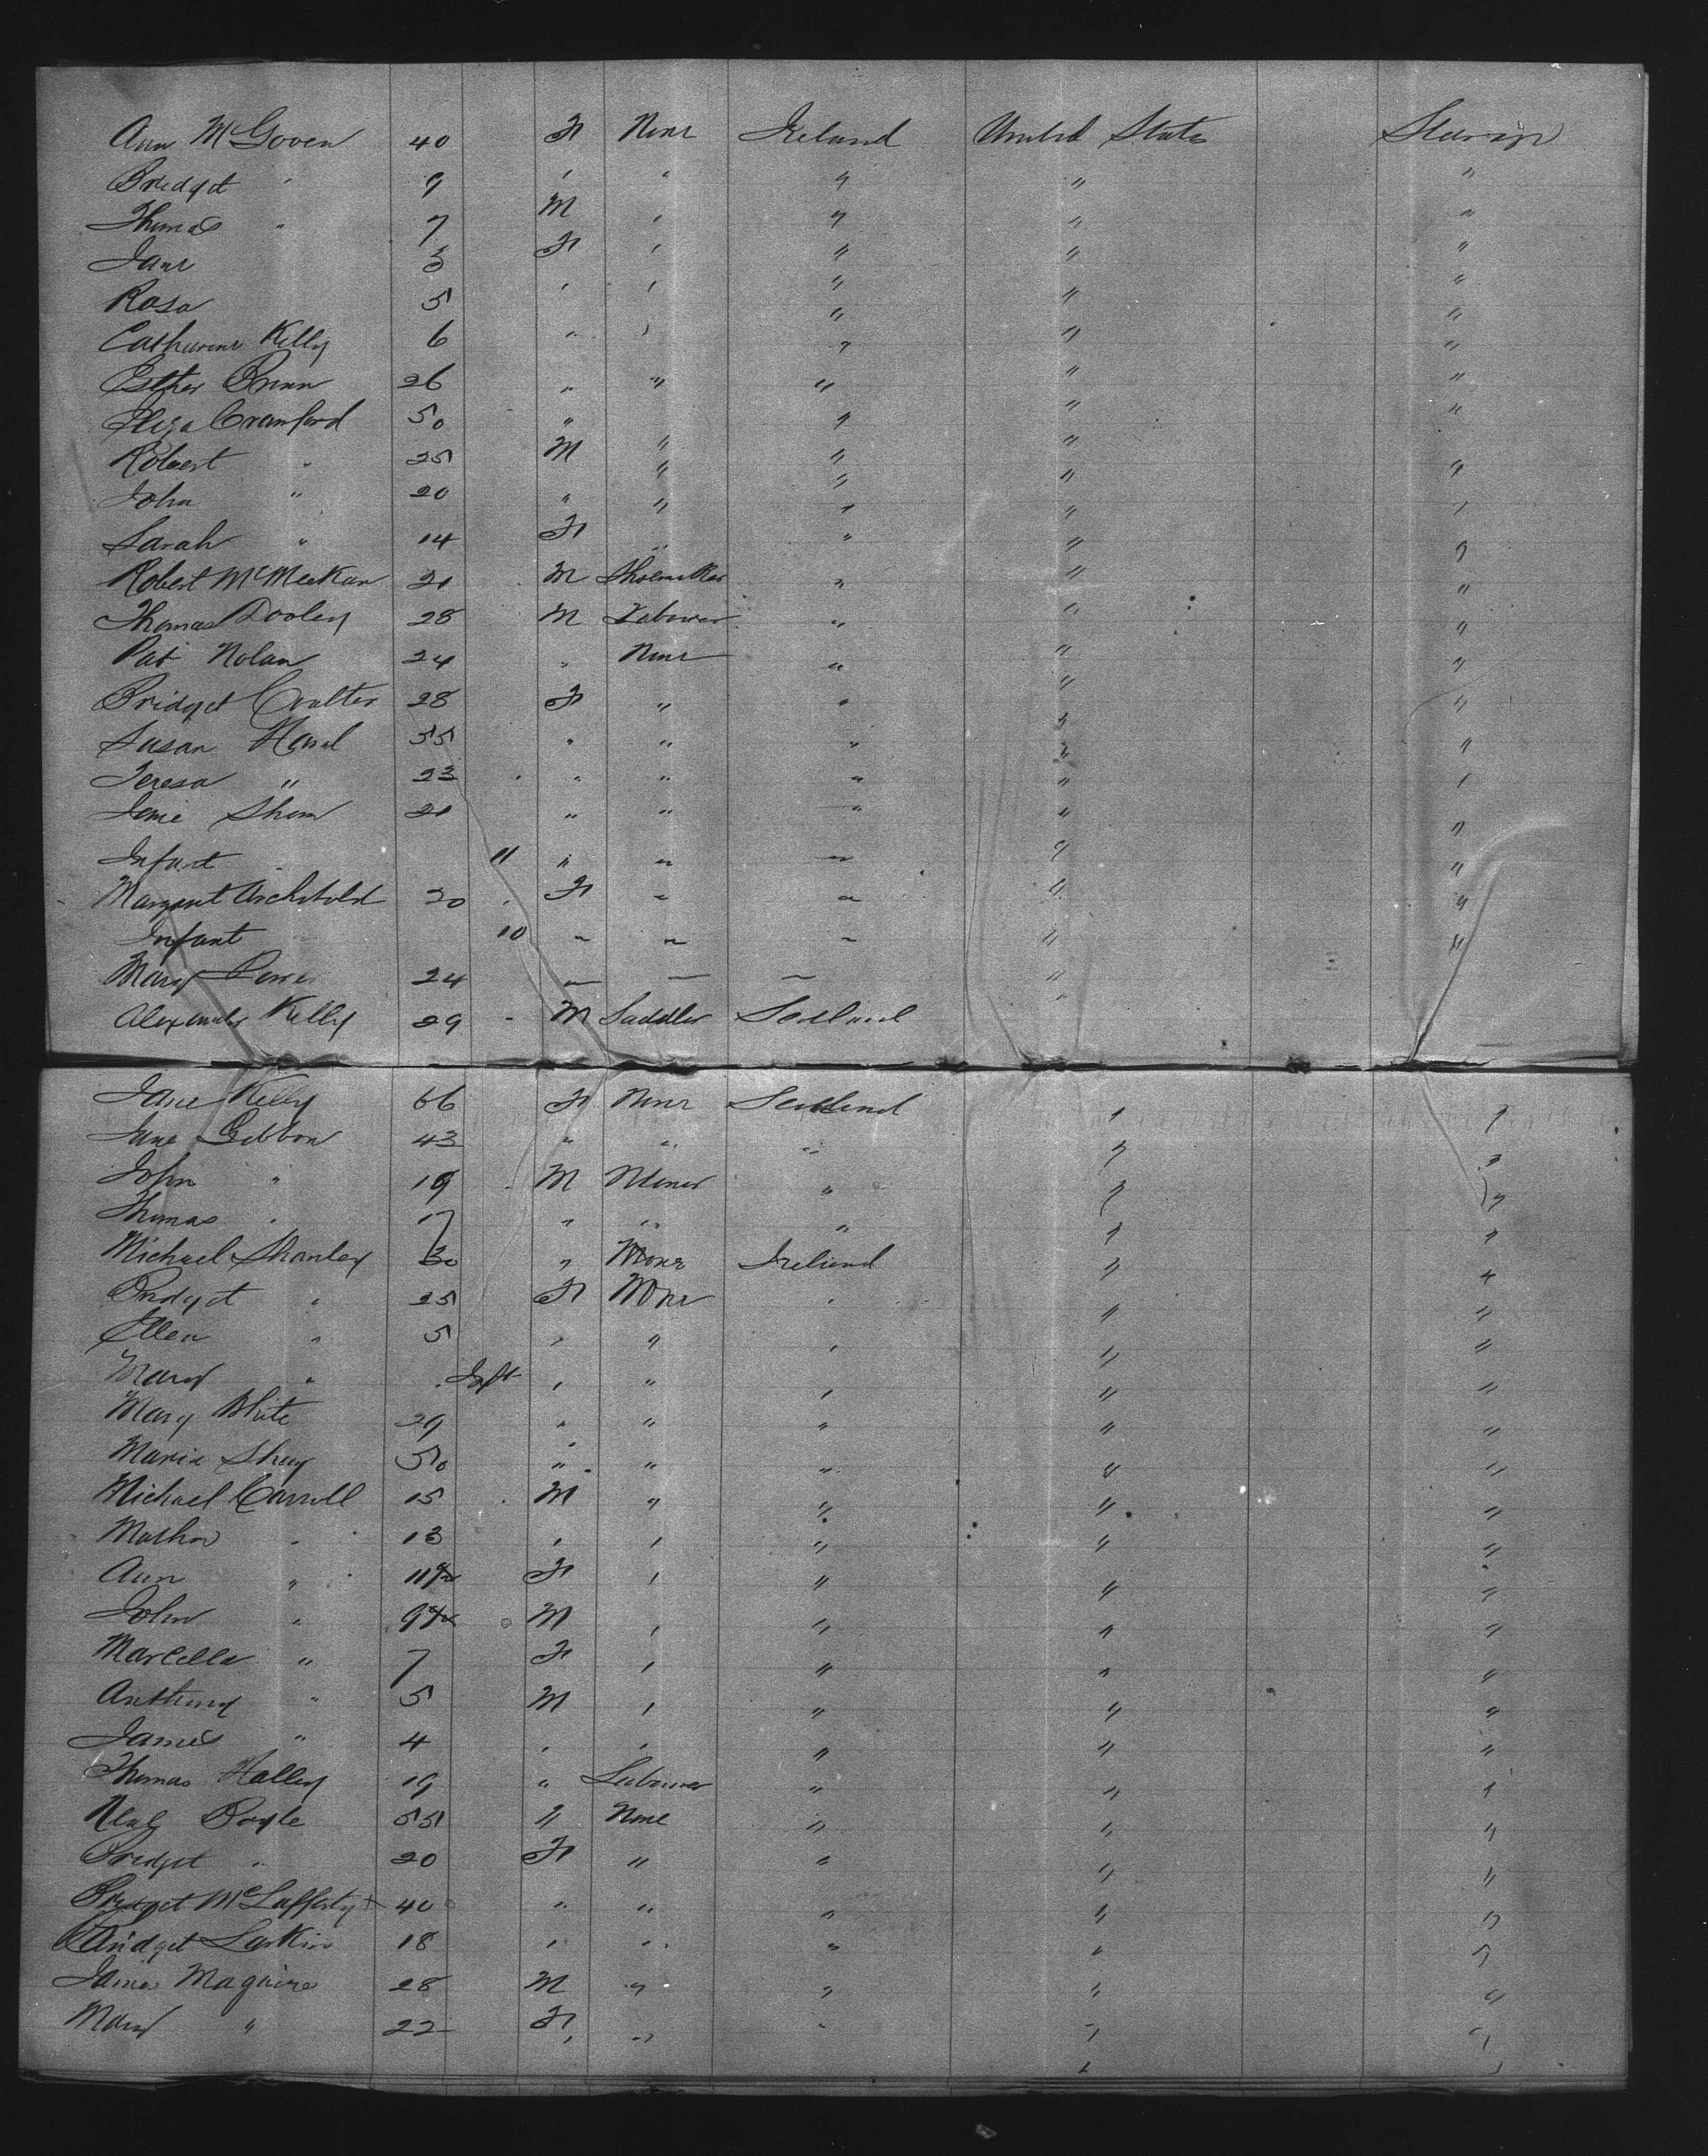 Ann McGoven 40 F None Ireland United States Steerage
Bridget " 9 " " " " "
Thomas " 7 M " " " "
Jane 3 F " " " "
Rosa 5 " " " " "
Catharine Kelly 6 " " " " "
Esther Brinn 26 " " " " "
Eliza Crawford 50 " " " "
Robert " 25 M " " " "
John " 20 " " " " "
Sarah " 14 F " " " "
Robert McMeekan 21 M Shoemaker " " "
Thomas Dooley 28 M Labourer " " "
Pat Nolan 24 " None " " "
Bridget Coulter 28 F " " " "
Susan Hand 55 " " " " "
Teresa " 23 " " " " "
Jane Shaw 21 " " " " "
Infant 11 " " " " "
Margaret Archibold 20 F " " " "
Infant 10 " " " " "
Mary 24 " " " "
Alexander Kelly 29 M Saddler Scotland "
Jane Kelly 66 F None Scotland " "
Jane Gibbon 43 " " " " "
John " 19 M Miner " " "
Thomas " 17 " " " " "
Michael Shanley 30 " None Ireland " "
Bridget " 25 F None " " "
Ellen " 5 " " " " "
Mary " Inft " " " " "
Mary White 29 " " " " "
Maria Shey 50 " " " " "
Michael Carroll 15 M " " " "
Mathew " 13 " " " " "
Ann " 11 F " " " "
John " 9 M " " " "
Marcella " 7 F " " " "
Anthony " 5 M " " " "
James " 4 " " " " "
Thomas Halley 19 " Labourer " " "
Neal Boyle 55 " None " " "
Bridget " 20 F " " " "
Bridget McLafferty 40 " " " " "
Bridget Larkin 18 " " " " "
James Maguire 28 M " " " "
Mary " 22 F " " " "